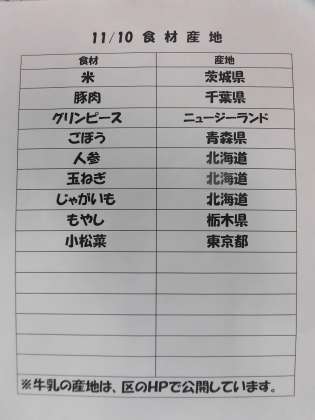 11/10 食材産地
食材 産地
米 茨城県
豚肉 千葉県
グリンピース ニュージーランド
ごぼう 青森県
人参 北海道
玉ねぎ 北海道
じゃがいも 北海道
もやし 栃木県
小松菜 東京都
※牛乳の産地は、区のHPで公開しています。